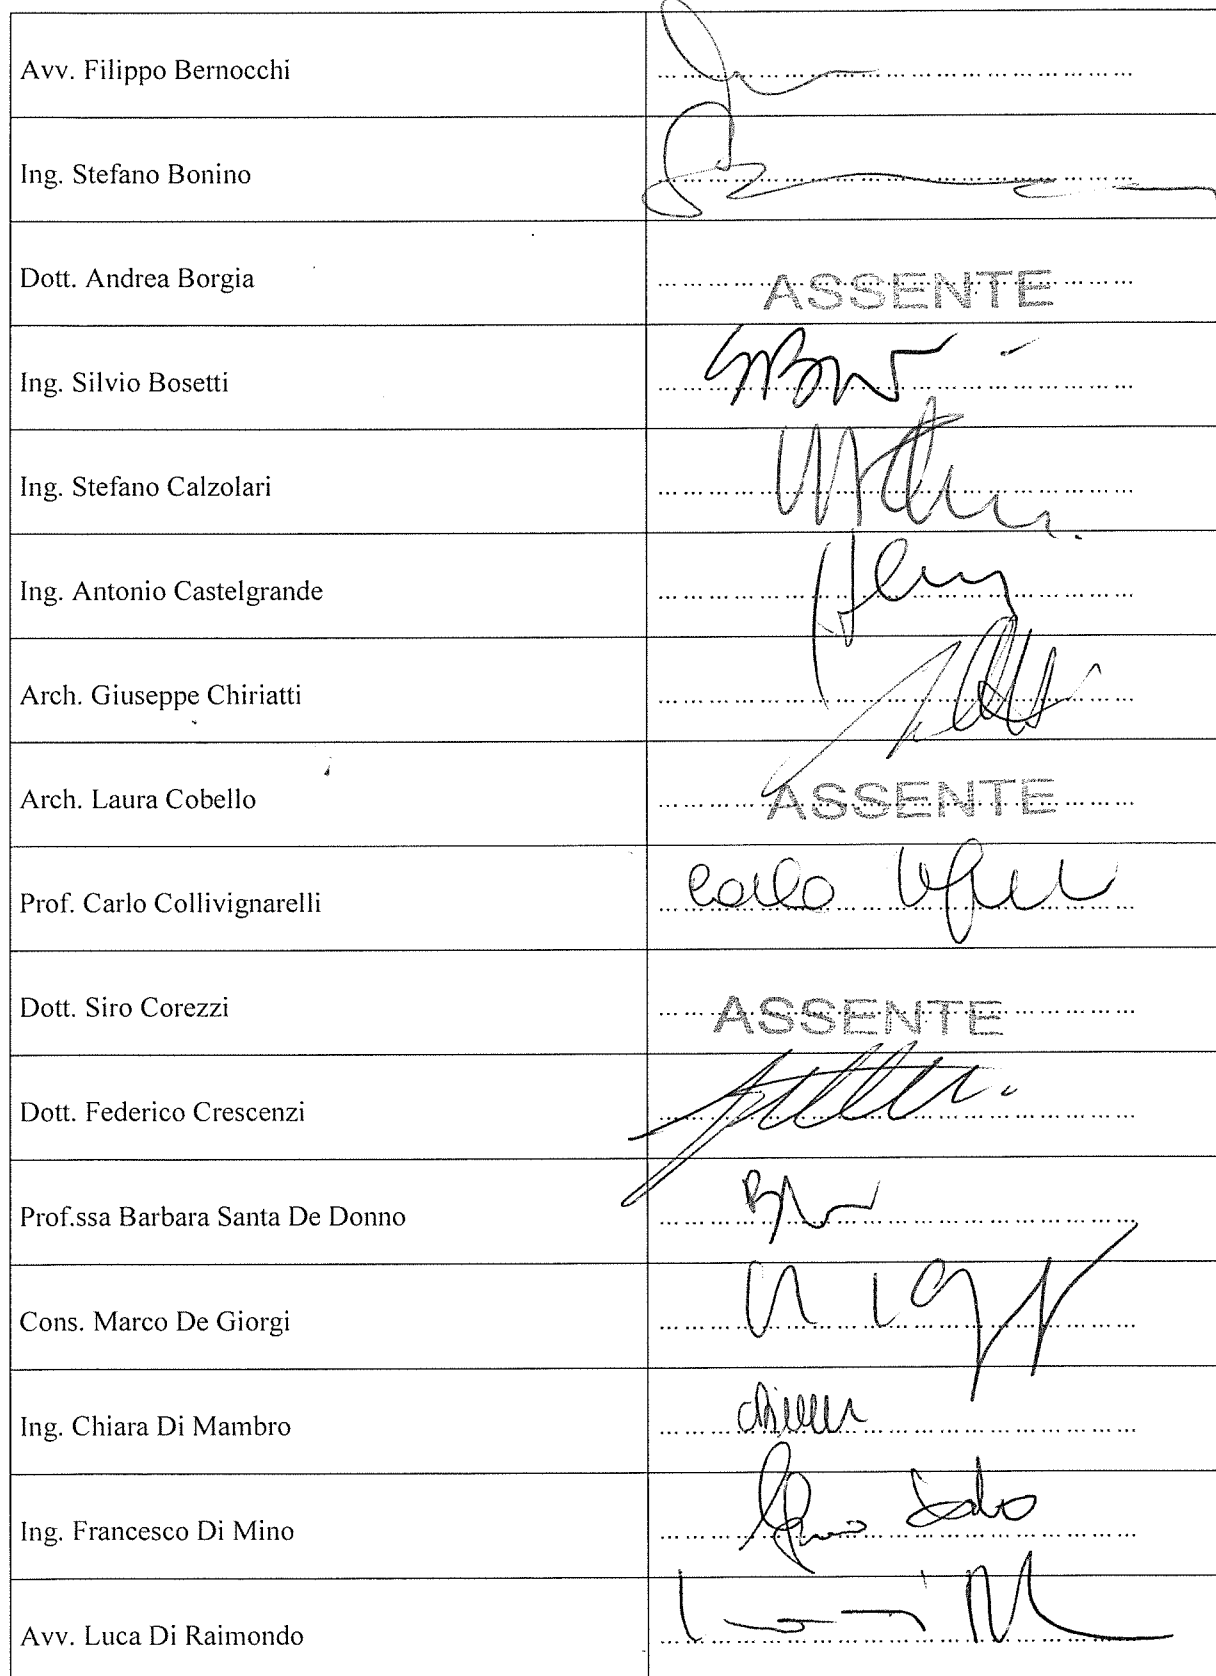 Avv. Filippo Bernocchi
Ing. Stefano Bonino
Dott. Andrea Borgia ASSENTE
Ing. Silvio Bosetti
Ing. Stefano Calzolari
Ing. Antonio Castelgrande
Arch. Giuseppe Chiriatti
Arch. Laura Cobello ASSENTE
Prof. Carlo Collivignarelli Carlo
Dott. Siro Corezzi ASSENTE
Dott. Federico Crescenzi
Prof.ssa Barbara Santa De Donno
Cons. Marco De Giorgi
Ing. Chiara Di Mambro
Ing. Francesco Di Mino
Avv. Luca Di Raimondo